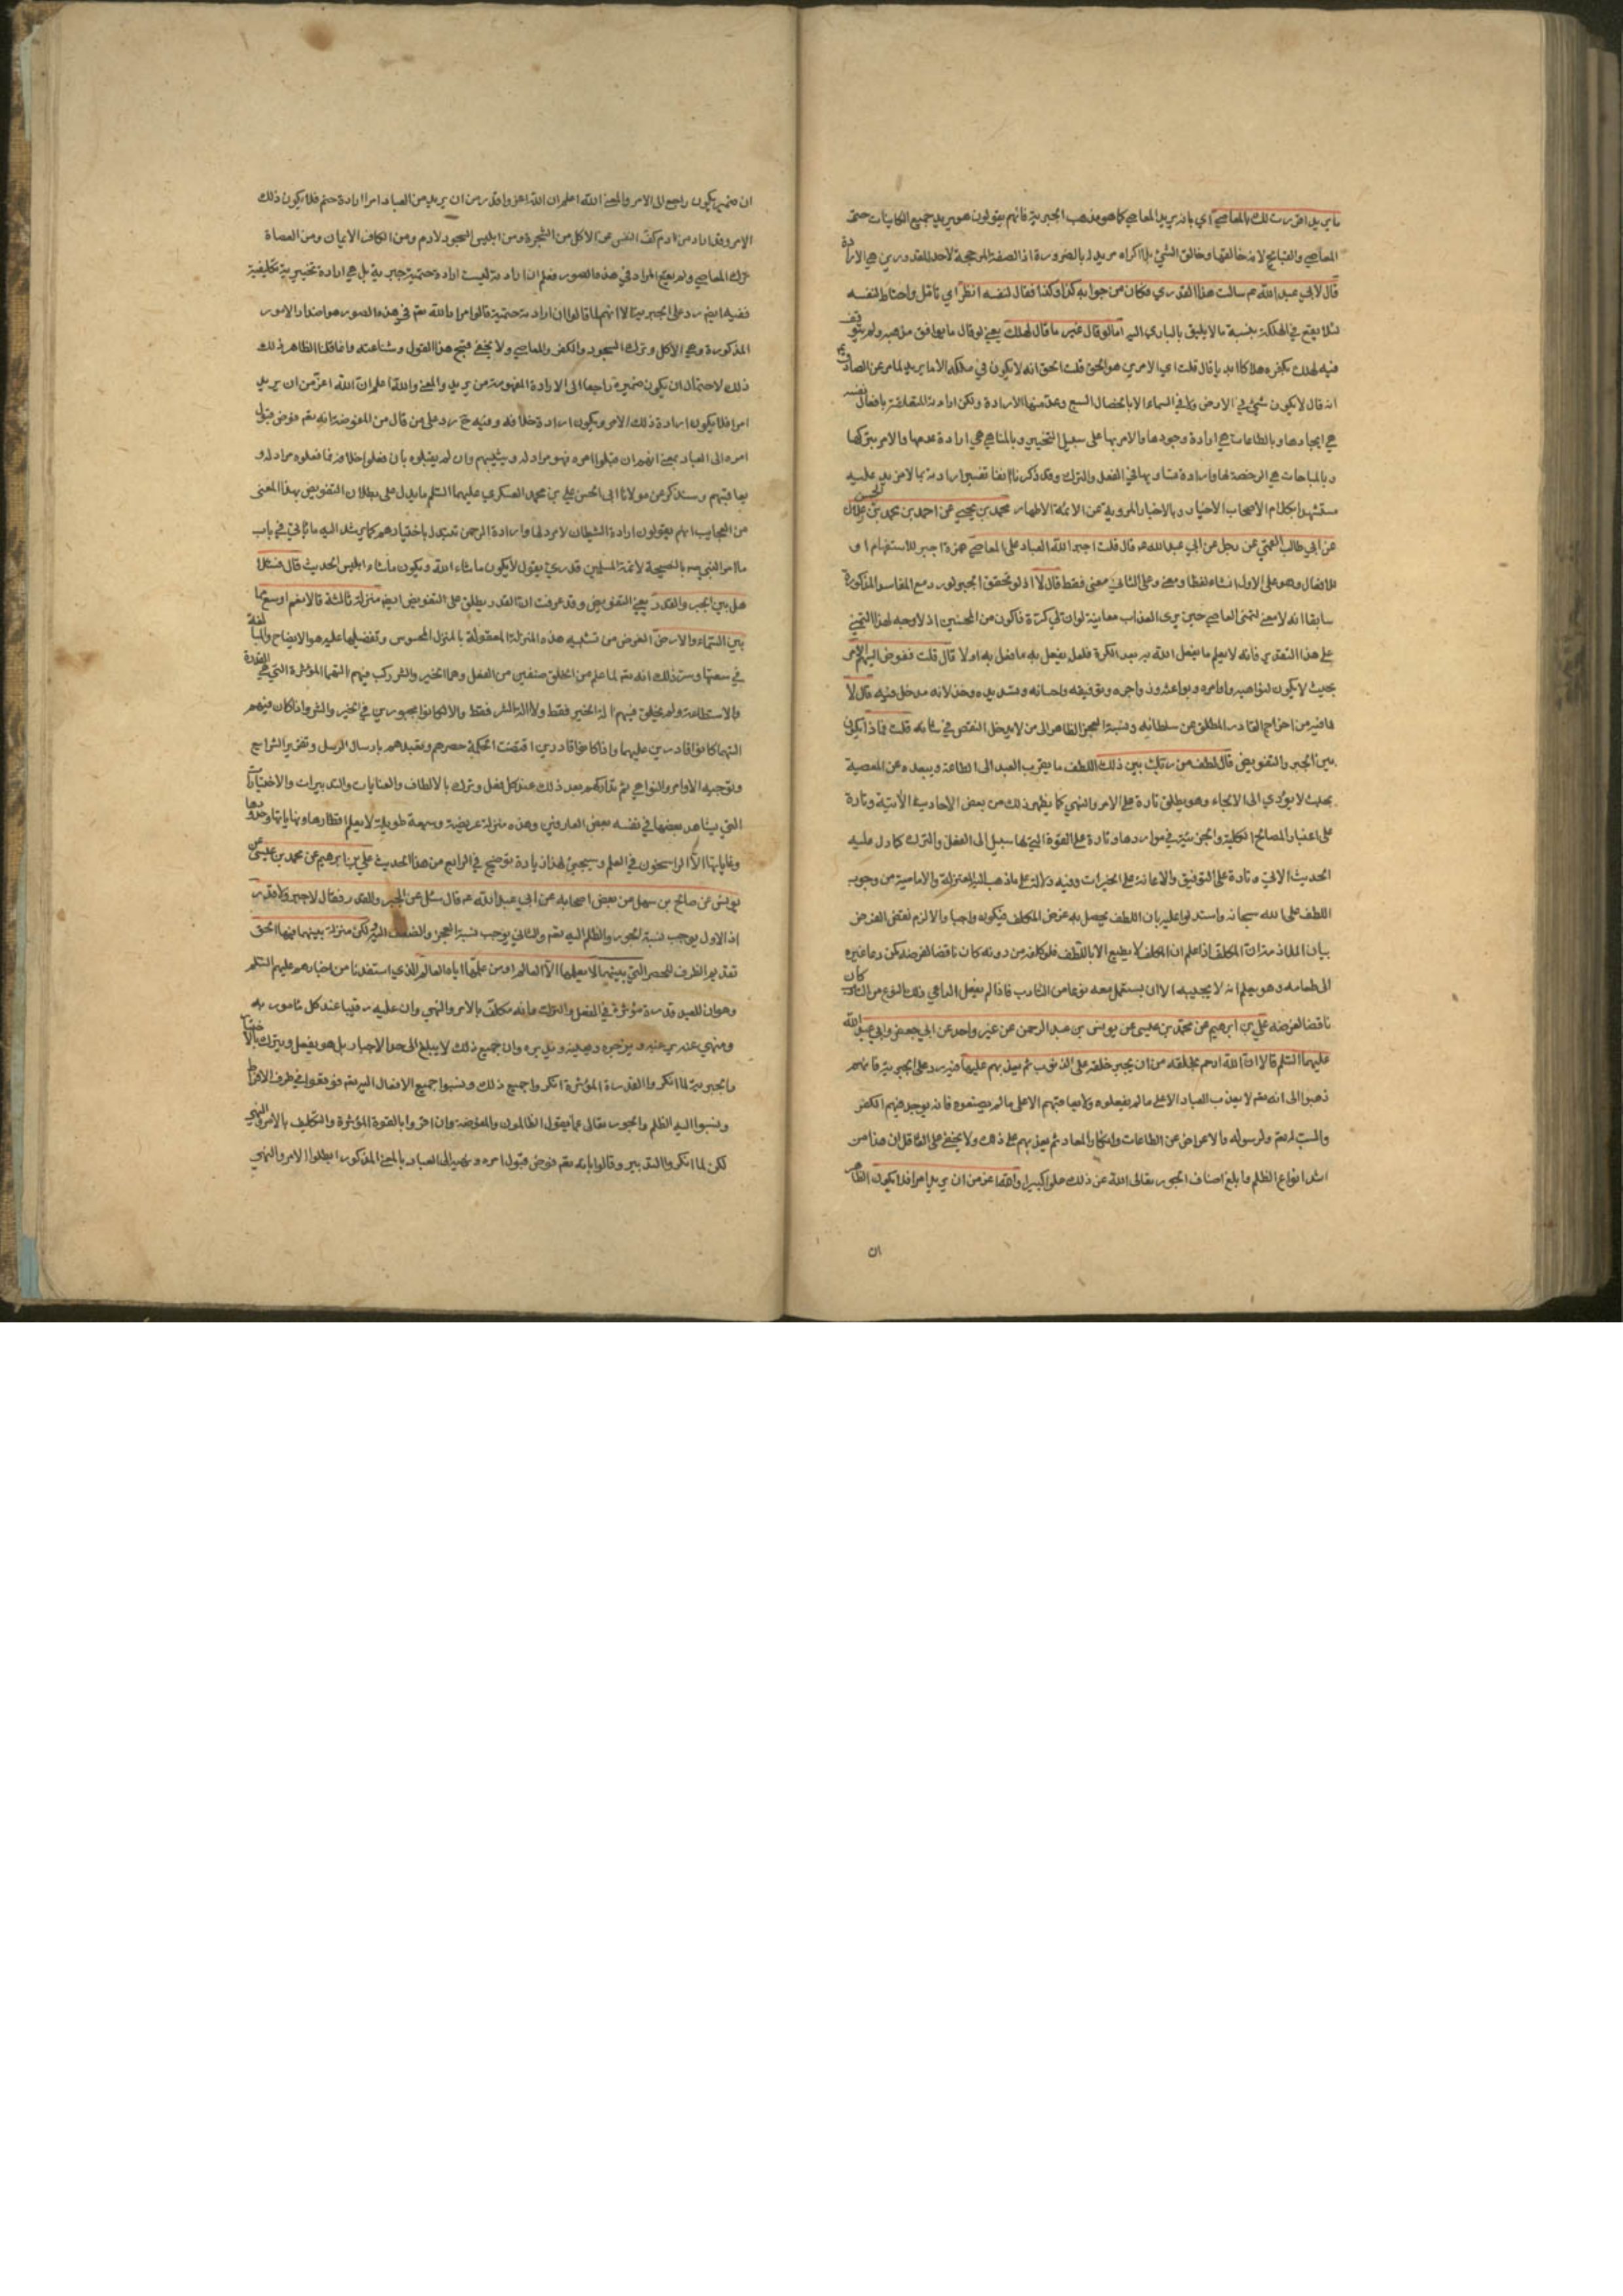 ما يريد اقررت لك بالمعاصي اي بانه يريد المعاصي كما هو مذهب الجبرية فانهم يقولون هو يريد جميع الكاينات حتى
المعاصي والقبايح لانه خالقها وخالق الشيء بلا اكراه مريد له بالضرورة اذ الصفة المرجحة لاحد المقدورين هي الارادة
قال لابي عبد الله عم سالت هذا القدري فكان من جوابه كذا وكذا فقال لنفسه انظر اي تامل واحتاط لنفسه
لئلا يقع في الهلكة بنسبة ما لا يليق بالباري اليه اما لو قال غير ما قال لهلك يعني لو قال ما يوافق مذهبه ولم يتوقف
فيه لهلك بكفره هلاكا ابديا قال قلت اي الامرين هو الحق قلت الحق انه لا يكون في ملكه الا ما يريد لما مر عن الصادق
انه قال لا يكون شيء في الارض ولا في السماء الا بالخصال السبع وعد منها الارادة ولكن ارادته المتعلقة بافعال نفسه
هي ايجادها وبالطاعات هي ارادة وجودها والامر بها على سبيل التخيير وبالمناهي هي ارادة عدمها والامر بتركها
وبالمباحات هي الرخصة لها وارادة تساويها في الفعل والترك وقد ذكرنا انفا تفسير ارادته بما لا مزيد عليه
مستشهدا بكلام الاصحاب الاخيار وبالاخبار المروية عن الائمة الاطهار محمد بن يحيى عن احمد بن محمد بن الحسن زعلان
عن ابي طالب القمي عن رجل عن ابي عبد الله عم قال قلت اجبر الله العباد على المعاصي همزة اجبر للاستفهام او
للافعال وهو على الاول انشاء لفظا ومعنى وعلى الثاني معنى فقط قال لا اذ لو تحقق الجبر لورد مع المفاسد المذكورة
سابقا انه لا معنى لتمنى العاصي حين يرى العذاب معاينة لو ان لي كرة فاكون من المحسنين اذ لا وجه لهذا التمني
على هذا التقدير فانه لا يعلم ما يفعل الله به بعد الكرة فلعله يفعل به ما فعل به اولا قال قلت ففوض اليهم الامر
بحيث لا يكون لنواهيه واوامره وبواعثه وزواجره وتوفيقه واحسانه وتسديده وخذلانه مدخل فيه قال لا
لما فيه من اخراج القادر المطلق عن سلطانه ونسبة العجز الظاهر الى من لا يدخل النقص في شانه قلت فماذا يكون
بين الجبر والتفويض قال لطف من ربك بين ذلك اللطف ما يقرب العبد الى الطاعة ويبعده عن المعصية
بحيث لا يؤدي الى الالجاء وهو يطلق تارة على الامر والنهي كما يظهر ذلك من بعض الاحاديث الاتية وتارة
على اعتبار المصالح الكلية والجزئية في مواردها وتارة على القوة التي لها سبيل الى الفعل والترك كما دل عليه
الحديث الاتي وتارة على التوفيق والاعانة على الخيرات وفيه دلالة على ما ذهب اليه المعتزلة والامامية من وجوب
اللطف على الله سبحانه واستدلوا عليه بان اللطف يحصل به غرض المكلف فيكون واجبا والا لزم نقض الغرض
بيان الملازمة ان المكلف اذا علم ان المكلف لا يطيع الا باللطف فلو كلفه من دونه كان ناقضا لغرضه كمن دعا غيره
الى طعامه وهو يعلم انه لا يجيبه الا ان يستعمل معه نوعا من التادب فاذا لم يفعل الداعي ذلك النوع من التادب كان
ناقضا لغرضه علي بن ابرهيم عن محمد بن عيسى عن يونس بن عبد الرحمن عن غير واحد عن ابي جعفر وابي عبد الله
عليهما السلم قالا ان الله ارحم بخلقه من ان يجبر خلقه على الذنوب ثم يعذبهم عليها فيه رد على الجبرية فانهم
ذهبوا الى انه تعم لا يعذب العباد الا على ما لم يفعلوه ولا يعاقبهم الا على ما لم يصنعوه فانه يوجد فيهم الكفر
والسب له تعم ولرسوله والاعراض عن الطاعات وانكار المعاد ثم يعذبهم على ذلك ولا يخفى على العاقل ان هذا من
اشد انواع الظلم وابلغ اصناف الجور تعالى الله عن ذلك علوا كبيرا والله اعز من ان يريد امرا فلا يكون الظاهر
ان
ان ضمير يكون راجع الى الامر والمعنى الله اعلم ان الله اعز واقدر من ان يريد من العباد امرا ارادة حتم فلا يكون ذلك
الامر وقد اراد من ادم كف النفس عن الاكل من الشجرة ومن ابليس السجود لادم ومن الكافر الايمان ومن العصاة
ترك المعاصي ولم يقع المراد في هذه الصور فعلم ان ارادته ليست ارادة حتمية جبرية بل هي ارادة تخييرية تكليفية
ففيه ايضا رد على الجبرية لا انهم لما قالوا ان ارادته حتمية قالوا مراد الله تعم في هذه الصور هو اضداد الامور
المذكورة وهي الاكل وترك السجود والكفر والمعاصي ولا يخفى قبح هذا القول وشناعته وانما قلنا الظاهر ذلك
ذلك لاحتمال ان يكون ضميره راجعا الى الارادة المفهومة من يريد والمعنى والله اعلم ان الله اعز من ان يريد
امرا فلا يكون ارادة ذلك الامر ويكون ارادة خلافه وفيه ح رد على من قال من المفوضة انه تعم فوض قبول
امره الى العباد بمعنى انهم ان قبلوا امره فهو مراد له ويثيبهم وان لم يقبلوه بان فعلوا خلافه فما فعلوه مراد له و
يعاقبهم وسنذكر عن مولانا ابي الحسن علي بن محمد العسكري عليهما السلم ما يدل على بطلان التفويض بهذا المعنى
من العجايب انهم يقولون ارادة الشيطان لا مرد لها وارادة الرحمن تتبدل باختيارهم كما يرشد اليه ما ياتي في باب
ما امر النبي ص بالنصيحة لائمة المسلمين قدري يقول لا يكون ما شاء الله ويكون ما شاء ابليس الحديث قال فسئلا
هل بين الجبر والقدر يعني التفويض وقد عرفت ان القدر يطلق على التفويض ايضا منزلة ثالثة قالا نعم اوسع مما
بين السماء والارض الغرض من تشبيه هذه المنزلة المعقولة بالمنزل المحسوس وتفضيلها عليه هو الايضاح والمبالغة
في سعتها وسر ذلك انه تعم لما علم من الخلق صنفين من الفعل وهما الخير والشر ركب فيهم التهيا المؤثرة التي هي القدرة
والاستطاعة ولم يخلق فيهم الة الخير فقط ولا الة الشر فقط والا لكانوا مجبورين في الخير والشر واذا كان فيهم
التهيا كانوا قادرين عليهما واذا كانوا قادرين اقتضت الحكمة حصرهم وتقييدهم بارسال الرسل وتقرير الشرايع
وتوجيه الاوامر والنواهي ثم تداركهم بعد ذلك عند كل فعل وترك بالالطاف والعنايات والتدبيرات والاختيارات
التي يشاهد بعضها في نفسه بعض العارفين وهذه منزلة عريضة وسيعة طويلة لا يعلم اقطارها ونهاياتها وحدودها
وغاياتها الا الراسخون في العلم وسيجيئ لهذا زيادة توضيح في الرابع من هذا الحديث علي بن ابرهيم عن محمد بن عيسى عن
يونس عن صالح بن سهل عن بعض اصحابه عن ابي عبد الله عم قال سئل عن الجبر والقدر فقال لا جبر ولا قدر
اذ الاول يوجب نسبة الجور والظلم اليه تعم والثاني يوجب نسبة العجز والضعف اليه ولكن منزلة بينهما فيها الحق
تقديم الظرف للحصر التي بينهما لا يعلمها الا العالم او من علمها اياه العالم الذي استفدنا من اخبارهم عليهم السلم
وهو ان للعبد قدرة مؤثرة في الفعل والترك وانه مكلف بالامر والنهي وان عليه رقيبا عند كل مامور به
ومنهي عنه يرغبه ويزجره ويعينه ويدبره وان جميع ذلك لا يبلغ الى حد الاجبار بل هو يفعل ويترك بالاختيار
والجبرية لما انكروا القدرة المؤثرة انكروا جميع ذلك ونسبوا جميع الافعال اليه تعم فوقعوا في طرف الافراط
ونسبوا اليه الظلم والجور تعالى عما يقول الظالمون والمفوضة وان اقروا بالقوة المؤثرة والتكليف بالامر والنهي
لكن لما انكروا التدبير وقالوا بانه تعم فوض قبول امره ونهيه الى العباد بالمعنى المذكور ابطلوا الامر والنهي